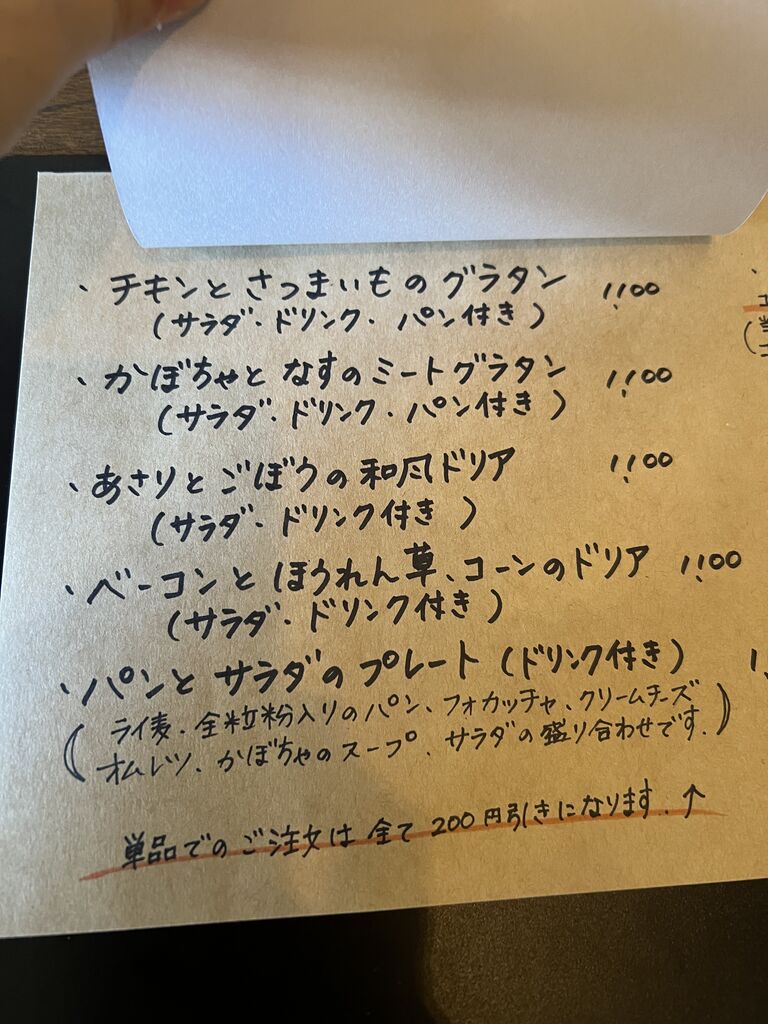 ・チキンとさつまいものグラタン 1,100
(サラダ・ドリンク・パン付き)
・かぼちゃとなすのミートグラタン 1,100
(サラダ・ドリンク・パン付き)
・あさりとごぼうの和風ドリア 1,100
(サラダ・ドリンク付き)
・ベーコンとほうれん草、コーンのドリア 1,100
(サラダ・ドリンク付き)
・パンとサラダのプレート(ドリンク付き)
(ライ麦、全粒粉入りのパン、フォカッチャ、クリームチーズ
オムレツ、かぼちゃのスープ、サラダの盛り合わせです.)
単品でのご注文は全て200円引きになります..↑